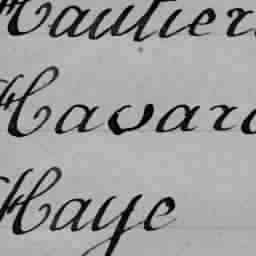 Hautier
Havard
Haye